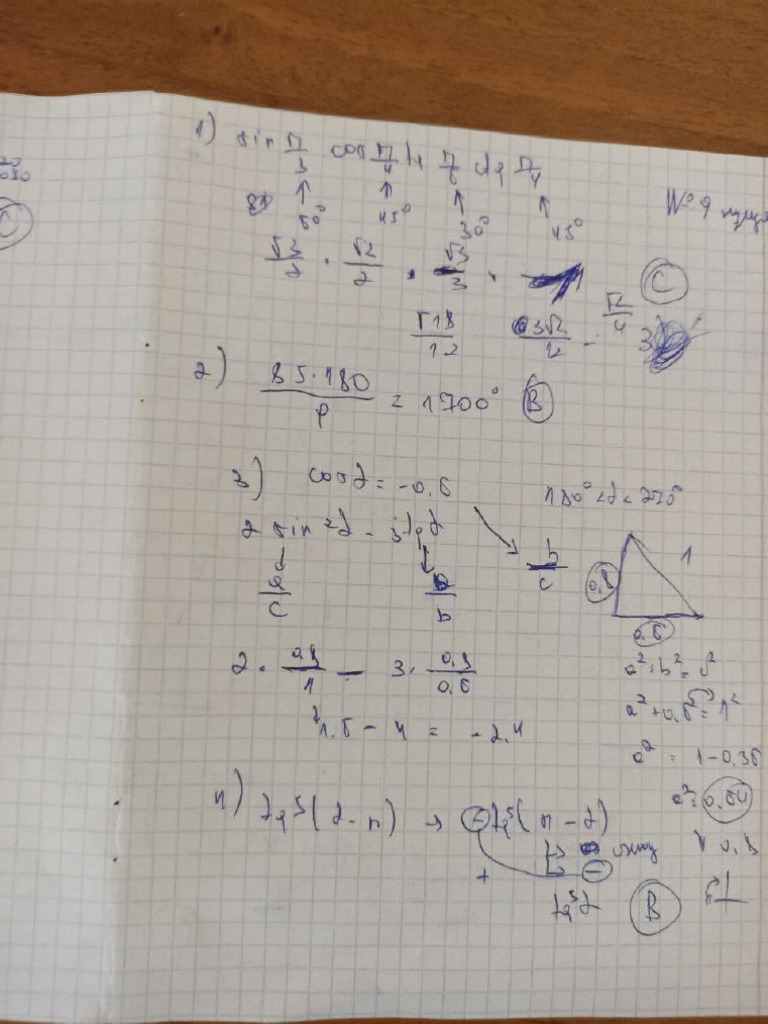 1) sin π/3 cos π/4 tg π/6 ctg π/4
60° 45° 30° 45°
√3/2 · √2/2 · √3/3 · 1 C
√18/12 3√2/12 = √2/4
2) 85·180/9 = 1700° B
3) cos α = -0,6 180° < α < 270°
2 sin α - 3 tg α
a/c a/b b/c
0,8 1
0,6
2 · 0,8/1 - 3 · 0,8/0,6
1.6 - 4 = -2.4
a² + b² = c²
a² + 0,6² = 1²
a² = 1 - 0,36
a² = 0,64
0,8
4) tg⁵(α - π) → -tg⁵(π - α)
+ -
tg⁵α B